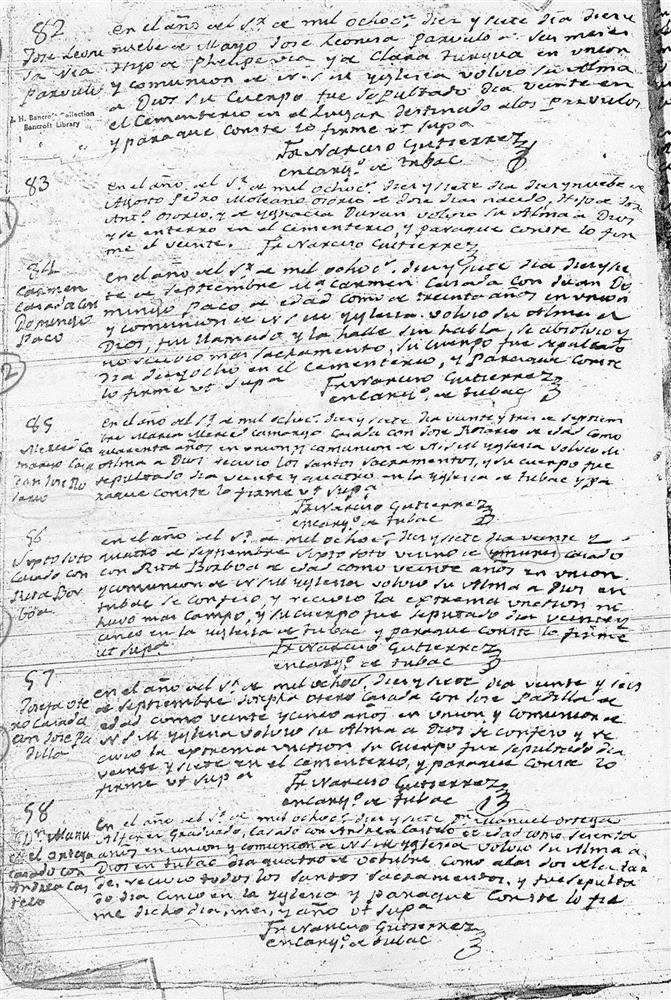 82
Jose Leoni
sa Via
Parvulo
en el año del Sr. de mil ochocs. diez y siete dia diez y
nuebe de Mayo Jose Leonisa Parvulo de seis meses
Hijo de Phelipe Via y de Clara Zuñiga en union
y comunion de N. S. M. Yglesia volvio su Alma
a Dios su Cuerpo fue sepultado dia veinte en
el Cementerio en el Lugar destinado a los Parvulos
y paraque conste lo firme vt supa
Fr Narciso Gutierrez
encargo. de tubac
H. H. Bancroft Collection
Bancroft Library
83
en el año del Sr. de mil ochocs. diez y siete dia diez y nuebe de
Agosto Pedro Osorio de Jose dias nacido, Hijo de Jose
Anto. Osorio, y de Ygnacia Duran volvio su Alma a Dios
y se enterro en el Cementerio, y paraque conste lo fir
me el veinte. Fr Narciso Gutierrez
84
Carmen
Casada con
Domingo
Paco
en el año del Sr. de mil ochocs. diez y siete dia diez y sie
te de septiembre Ma Carmen Casada con Juan Do
mingo Paco de edad como de treinta años en union
y comunion de N. S. M. Yglesia volvio su Alma a
Dios, fui llamado y la halle sin habla, se absolvio y
no recivio mas Sacramento, su cuerpo fue sepultado
dia diez y ocho en el cementerio, y Paraque Conste
lo firme vt supa Fr Narciso Gutierrez
encargo. de tubac
85
Merced Ca
margo Casa
da con Jose Ro
sario
en el año del Sr. de mil ochocs. diez y siete dia veinte y tres de septiem
bre Maria Merced Camargo Casada con Jose Rosario de edad como
quarenta años en union y comunion de N. S. M. Yglesia volvio su
Alma a Dios recivio los santos sacramentos, y su cuerpo fue
sepultado dia veinte y quatro en la Yglesia de tubac y pa
raque conste lo firme vt supa
Fr Narciso Gutierrez
encargo. de tubac
56
Sixto Soto
Casado con
Rita Bor
boa
en el año del Sr. de mil ochocs. diez y siete dia veinte y
quatro de septiembre Sixto Soto vecino de casado
con Rita Borboa de edad como veinte años en union
y comunion de N. S. M. Yglesia volvio su Alma a Dios en
tubac se confeso y recivio la extrema uncion no
huvo mas campo, y su cuerpo fue sepultado dia veinte y
cinco en la Yglesia de tubac y paraque conste lo firme
vt supa Fr Narciso Gutierrez
encargo. de tubac
57
Josefa Ote
ro Casada
con Jose Pa
dilla
en el año del Sr. de mil ochocs. diez y siete dia veinte y seis
de septiembre Josepha Otero Casada con Jose Padilla de
edad como veinte y cinco años en union y comunion de
N. S. M. Yglesia volvio su Alma a Dios se confeso y re
civio la extrema uncion su Cuerpo fue sepultado dia
veinte y siete en el cementerio, y paraque conste lo
firme vt supa Fr Narciso Gutierrez
encargo. de tubac
58
Dn. Manu
el Ortega
casado con
Andrea Cas
telo
En el año del Sr. de mil ochocs. diez y siete Dn. Manuel Ortega
Alferez Graduado, Casado con Andrea Castelo de edad como sesenta
años en union y comunion de N. S. M. Yglesia volvio su Alma a
Dios en tubac dia quatro de octubre, como a las dos de la tar
de, recivio todos los santos sacramentos, y fue sepulta
do dia cinco en la Yglesia y paraque conste lo fir
me dicho dia, mes, y año vt supa
Fr Narciso Gutierrez
encargo. de tubac